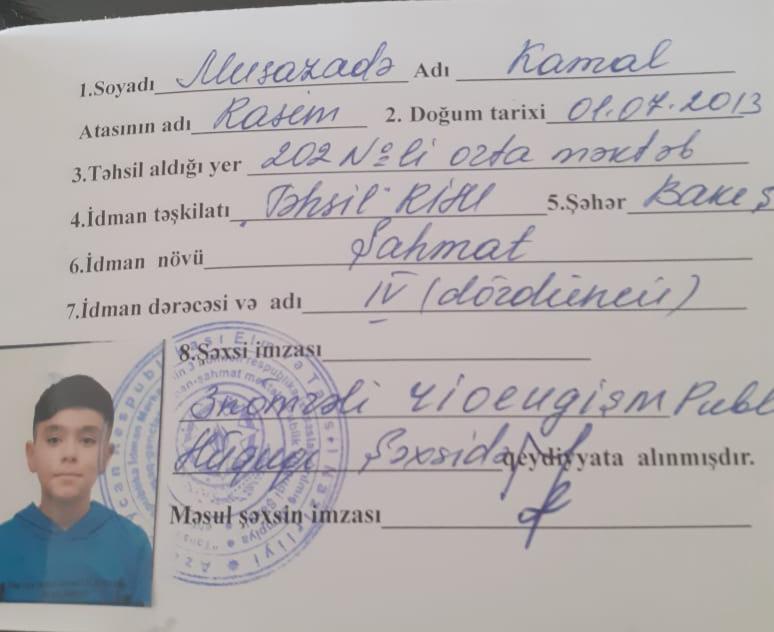 1.Soyadı Musazadə Adı Kamal
Atasının adı Rasim 2. Doğum tarixi 01.07.2013
3.Təhsil aldığı yer 202 №-li orta məktəb
4.İdman təşkilatı Təhsil 5.Şəhər Bakı ş
6.İdman növü Şahmat
7.İdman dərəcəsi və adı IV (dördüncü)
8.Şəxsi imzası
3 nömrəli Publ
Hüquqi Şəxsidə qeydiyyata alınmışdır.
Məsul şəxsin imzası